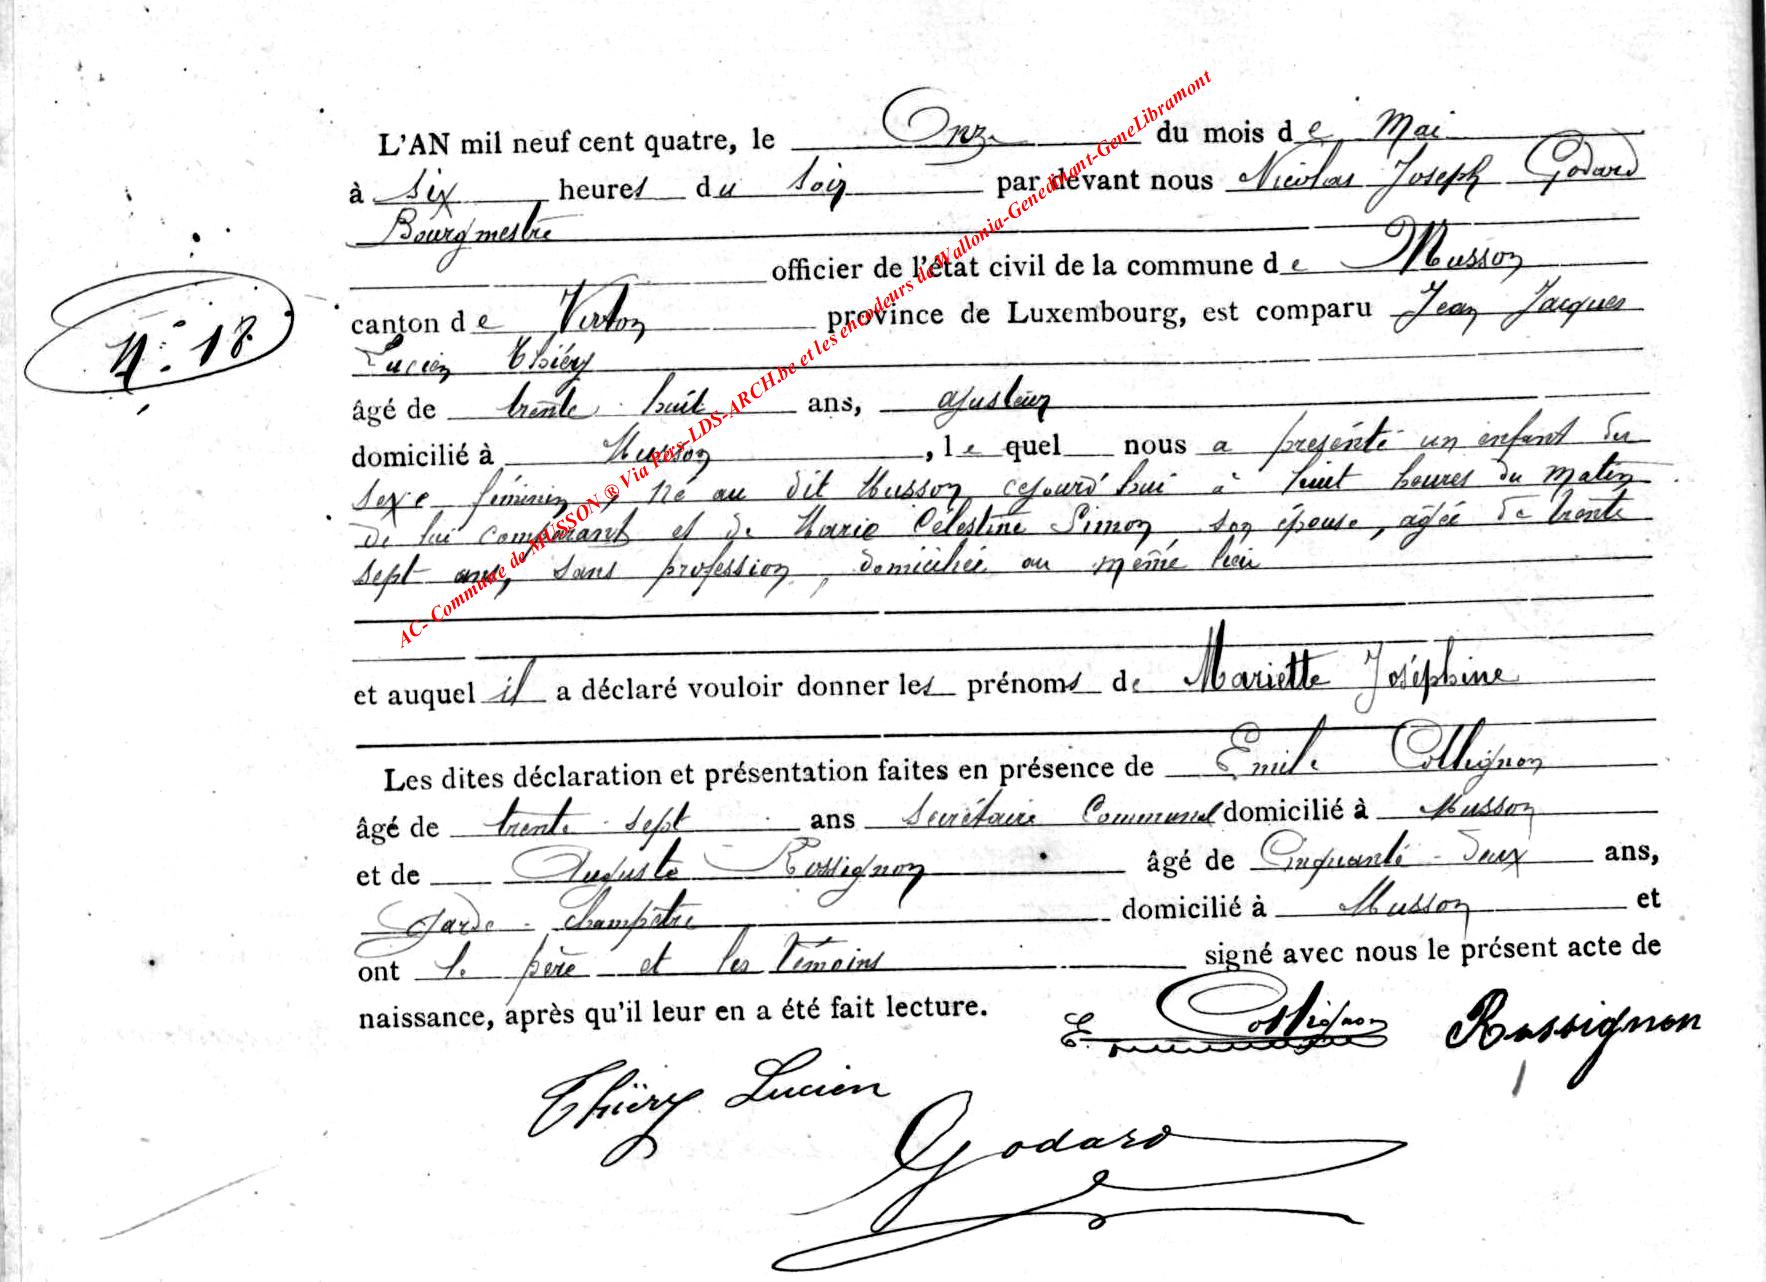 L'AN mil neuf cent quatre, le Onze du mois de Mai
à six heures du soir par devant nous Nicolas Joseph Godard
Bourgmestre
officier de l'état civil de la commune de Musson
canton de Virton province de Luxembourg, est comparu Jean Jacques
Lucien Thiéry
âgé de trente huit ans, ajusteur
domicilié à Musson, lequel nous a présenté un enfant du
sexe féminin, né au dit Musson cejourd'hui à huit heures du matin
de lui comparant et de Marie Célestine Simon son épouse, âgée de trente
sept ans, sans profession, domiciliée au même lieu
et auquel il a déclaré vouloir donner les prénoms de Mariette Joséphine
Les dites déclaration et présentation faites en présence de Emile Collignon
âgé de trente-sept ans Secrétaire Communal domicilié à Musson
et de Auguste Rossignon âgé de Cinquante-deux ans,
Garde-champêtre domicilié à Musson et
ont le père et les témoins signé avec nous le présent acte de
naissance, après qu'il leur en a été fait lecture.
E. Collignon Rossignon
Thiéry Lucien
Godard
N° 18.
AC- Commune de MUSSON ® Via Pers-LDS-ARCH.be et les encodeurs de Wallonia-Genedinant-GeneLibramont